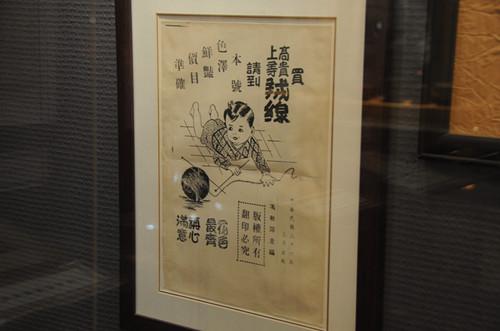 買
高貴
上等
羢線
請到
本號
色澤
鮮豔
價目
準確
版權所有
翻印必究
花色
最齊
稱心
滿意